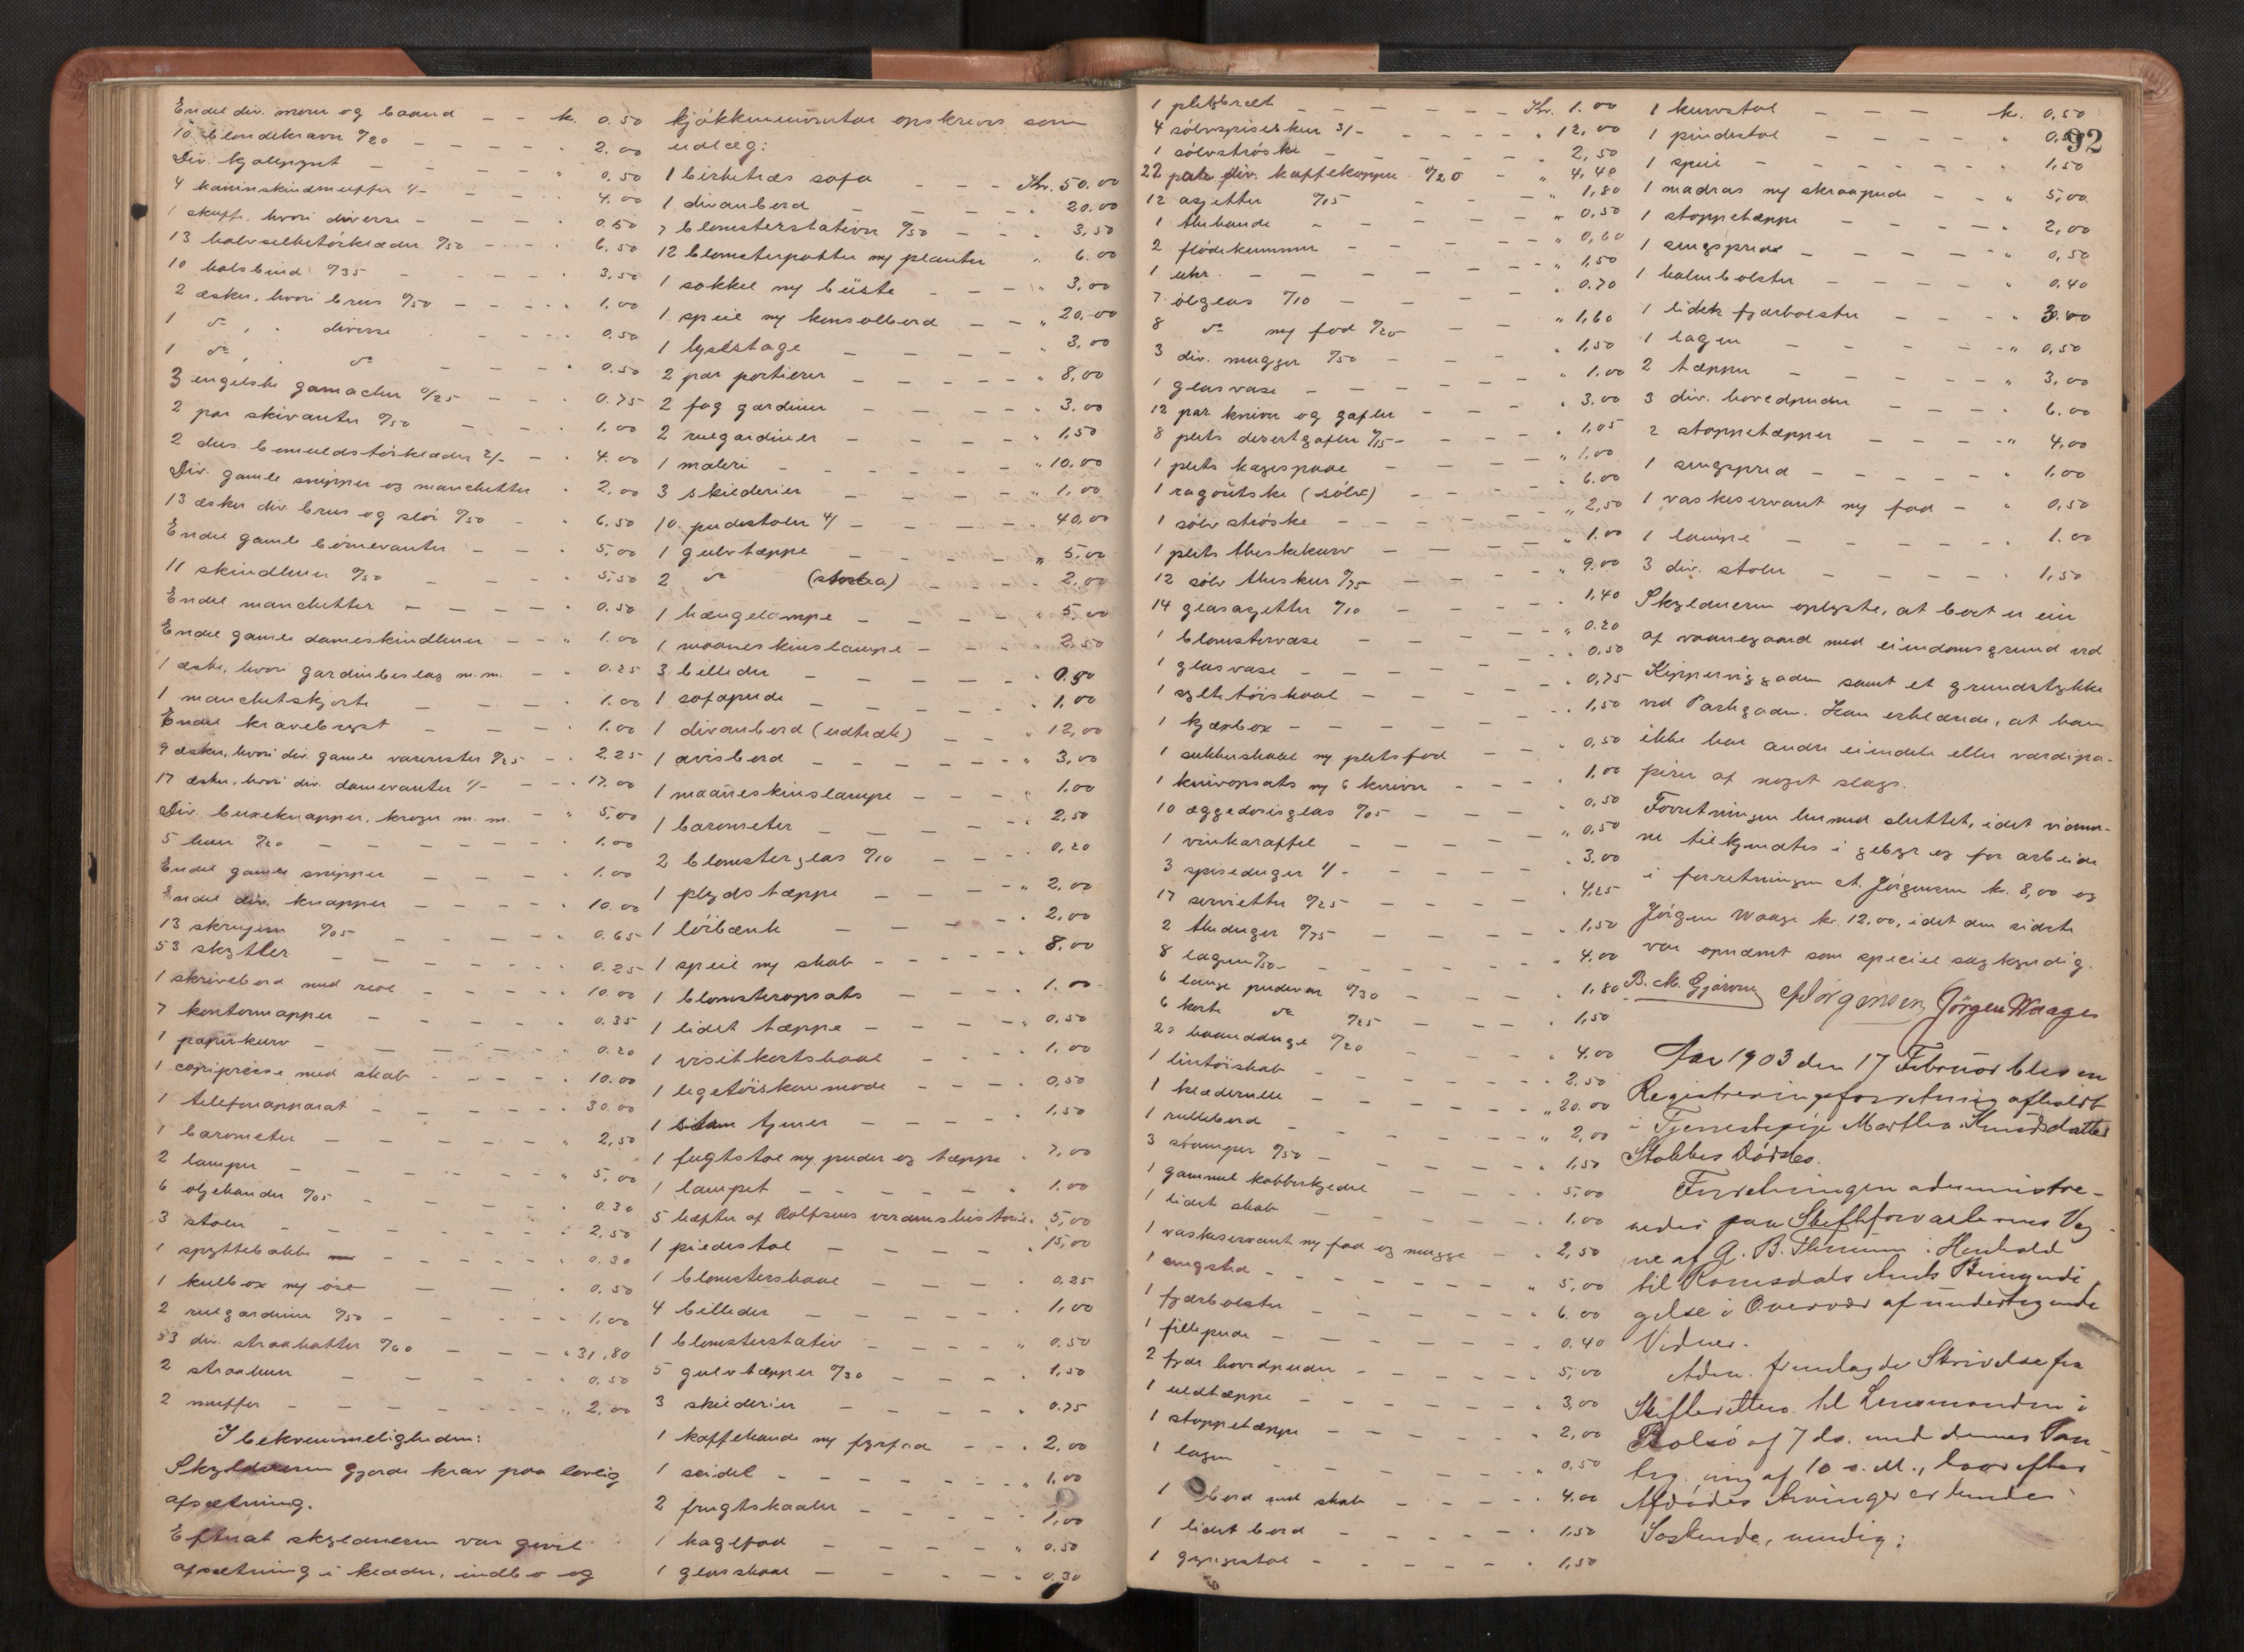 Endel div. mour og baand - - k. 0.50
10 blondekraver º/20 - - - - - " 2.00
Div. kjolepynt - - - - " 0,50
4 kaninskindmuffer 1/- - - - 4.00
1 skuffe, hvori diverse - - - - 0.50
13 halvsilketörklæder º/50 - - - 6.50
10 halsbind º/35 - - - - 3,50
2 æsker, hvori brus º/50 - - - - 1.00
1 do , " diverse - - - 0,50
1 do , " do - - - 0.50
3 engelske gamacher º/25 - - - 0.75
2 par skivanter º/50 - - 1,00
2 dus. bomuldstörklæder 2/- - - 4.00
Div. gamle snipper og manchetter " 2,00
13 æsker div. brus og slör º/50 - " 6.50
Endel gamle börnevanter - - " 5,00
11 skindluer º/50 - - - 5,50
Endel manchetter - - - - " 0.50
Endel gamle dameskindluer - - " 1.00
1 æske, hvori gardinbeslag m.m. - " 0.25
1 manchetskjorte - - - " 1.00
Endel kravebryst - - - 1.00
9 æsker, hvori div. gamle varerester º/25 - " 2,25
17 æsker, hvori div. damevanter 1/- - - " 17.00
Div. buxeknapper, kroger m.m. - " 5,00
5 huer º/20 - - - - - 1.00
Endel gamle snipper - - - " 1.00
Endel div. knapper - - - - " 10.00
13 skrujern º/05 - - - - " 0.65
53 skytler - - - - - " 0.25
1 skrivebord med reol - - - - " 10.00
7 kontormapper - - - - " 0.35
1 papirkurv - - - - - " 0.20
1 copipresse med skab - - - - " 10.00
1 telefonapparat - - - - - 30.00
1 barometer - - - - - " 2,50
2 lamper - - - - - - " 5,00
6 oljekander º/05 - - - - " 0.30
3 stoler - - - - - - " 2.50
1 spyttebakke - - - - - " 0.30
1 kulbox m/ öse - - - " 0,50
2 rulgardiner º/50 - - - - " 1,00
53 div. straahatter º/60 - - - " 31,80
2 straahuer - - - - - " 0,50
2 muffer - - - - - - - " 2.00
I bekvemmeligheden:
Skyldneren gjorde krav paa lovlig
afsætning.
Efterat skyldneren var givet
afsætning i klæder, indbo og
kjökkeninventar opskrives som
udlæg:
1 birketræs sofa - - - Kr. 50.00
1 divanbord - - - - - - 20.00
7 blomsterstativer º/50 - - " 3,50
12 blomsterpotter m/ planter " 6.00
1 sokkel m/ büste - - - " 3,00
1 speil m/ konsolbord - - " 20.00
1 lysestage - - - - " 3,00
2 par portierer - - - - - " 8,00
2 fag gardiner - - - - " 3.00
2 rulgardiner - - - - - " 1,50
1 maleri - - - - - - " 10.00
3 skilderier - - - - - " 1,00
10 pudestoler 4/ - - - - 40,00
1 gulvtæppe - - - - - " 5.00
2 do - - - " 2,00
1 hængelampe - - - - " 5,00
1 maaneskinslampe - - - " 2,50
3 billeder - - - - - - " 0.90
1 sofapude - - - - - " 1,00
1 divanbord (udtræk) - - " 12,00
1 avisbord - - - - - - " 3,00
1 maaneskinslampe - - - " 1.00
1 barometer - - - - - " 2,50
2 blomsterglas º/10 - - - - 0,20
1 plydstæppe - - - - " 2,00
1 löibænk - - - - - " 2,00
1 speil m/ skab - - - - - " 8,00
1 blomsteropsats - - - - " 1.00
1 lidet tæppe - - - - - " 0,50
1 visitkortskaal - - - " 1.00
1 legetöiskommode - - - - " 0,50
1 stum tjener - - - - - " 1,50
1 fugtstol m/ puder og tæppe " 7,00
1 lampet - - - - - - " 1.00
5 hæfter af Rolfsens verdenshistorie " 5,00
1 piedestal - - - - - " 15,00
1 blomsterskaal - - - - " 0,25
4 billeder - - - - - " 1,00
1 blomsterstativ - - - - " 0,50
5 gulvtæpper º/30 - - - - 1,50
3 skilderier - - - - - " 0.75
1 kaffekande m/ fyrfad - - " 2,00
1 seidel - - - - - - - " 1,00
2 frugtskaaler - - - - - 1,00
1 kagefad - - - - - " 0.50
1 glasskaal - - - - - " 0.30
1 pletbræt - - - - - - Kr. 1.00
4 sölvspiseskeer 3/- - - - - " 12,00
1 sölvströske - - - - - - " 2,50
22 par div. kaffekopper º/20 - " 4,40
12 asjetter º/15 - - - " 1,80
1 thekande - - - - - " 0,50
2 flödekummer - - - - - " 0,60
1 uhr - - - - - - - " 1,50
7 ölglas º/10 - - - - - " 0.70
8 do m/ fod º/20 - - - " 1,60
3 div. mugger º/50 - - - - " 1,50
1 glasvase - - - - - - " 1.00
12 par kniver og gafler - - - " 3.00
8 plets desertgafler º/15 - - - - " 1,05
1 plets kagespade - - - - " 1,00
1 ragoutske (sölv) - - - - " 6.00
1 sölvströske - - - - - " 2,50
1 plets theskekurv - - - - " 1.00
12 sölv theskeer º/75 - - - - " 9.00
14 glasasjetter º/10 - - - - " 1,40
1 blomstervase - - - - - " 0.20
1 glasvase - - - - - " 0,50
1 syltetöiskaal - - - - - " 0,75
1 kjæxbox - - - - - - " 1,50
1 sukkerskaal m/ pletsfod - - " 0,50
1 knivopsats m/ 6 kniver - - - " 1.00
10 æggedosisglas º/05 - - - - " 0,50
1 vinkaraffel - - - - - " 0,50
3 spiseduger 1/- - - - - " 3,00
17 servietter º/25 - - - - " 4,25
2 theduger º/75 - - - - - " 1,50
8 lagen º/50 - - - - - " 4.00
6 lange pudevar º/30 - - - " 1,80
6 korte do º/25 - - - - " 1,50
20 haandduge º/20 - - - " 4.00
1 lintöiskab - - - - - " 2.50
1 klæderulle - - - - - " 20.00
1 rullebord - - - - - " 2,00
3 stamper º/50 - - - - - " 1,50
1 gammel kobberkjedel - - - - " 5,00
1 lidet skab - - - - - - " 1,00
1 vaskeservant m/ fad og mugge - " 2,50
1 sengsted - - - - - - - " 5,00
1 fjærbolster - - - - - - " 6.00
1 fillepude - - - - - - " 0,40
2 fjær hovedpuder - - - - - " 5,00
1 uldtæppe - - - - - - " 3,00
1 stoppetæppe - - - - - " 2,00
1 lagen - - - - - - " 0,50
1 bord med skab - - - - " 4.00
1 lidet bord - - - - - " 1,50
1 gyngestol - - - - - " 1,50
92
1 kurvstol - - - - kr. 0,50
1 pindestol - - - - - "
1 speil - - - - - - - " 1,50
1 madras m/ skraapude - - " 5,00
1 stoppetæppe - - - - - " 2,00
1 sengspred - - - - - " 0,50
1 halmbolster - - - - - " 0,40
1 lidet fjærbolster - - - - " 3.00
1 lagen - - - - - - " 0,50
2 tæpper - - - - - " 3,00
3 div. hovedpuder - - - - " 6.00
2 stoppetæpper - - - - " 4,00
1 sengspred - - - - - " 1.00
1 vaskeservant m/ fad - " 0,50
1 lampe - - - - - - 1.00
3 div. stoler - - - - - " 1,50
Skyldneren oplyste, at boet er eier
af vaaningsgaard med eiendomsgrund ved
samt et grundstykke
ved Parkgaden. Han erklærede, at han
ikke har andre eiendele eller værdipa-
pirer af noget slags.
Forretningen hermed sluttet, idet vidner-
ne tilkjendtes i gebyr og for arbeide
i forretningen A. Jörgensen kr. 8,00 og
Jörgen Waage kr. 12.00, idet den sidste
var opnævnt som speciel sagkyndig.
B. M. Gjærum A Jörgensen Jörgen Waage
Aar 1903 den 17 Februar blev en
Registreringsforretning afholdt
i Tjenestepige Martha Knudsdatter
Stokkes Dödsbo.
Forretningen administre-
redes paa Skifteforvalterens Veg-
ne af A. B. Flemum i Henhold
til Romsdals Amts Bemyndi-
gelse i Overvær af undertegnede
Vidner.
Adm. fremlagde Skrivelse fra
Skifteretten til Lensmanden i
Bolsö af 7 ds. med dennes Paa-
teg.ning af 10 s. M., hvorefter
Afdödes Arvinger er hendes
Söskende, myndig: